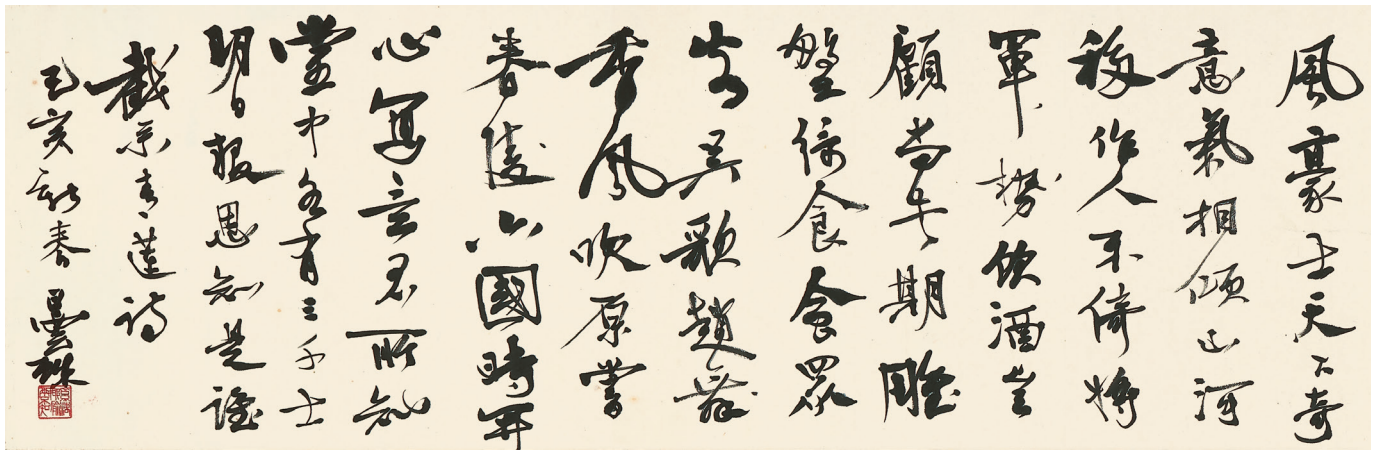 風豪士天下奇
意氣相傾山河
移作人不倚將
軍勢飲酒豈
顧尚書期雕
盤綺食會眾
客吳歌趙舞
香風吹原嘗
春陵六國時開
心寫意君所知
堂中各有三千士
明日報恩知是誰
截录青蓮詩
己亥新春